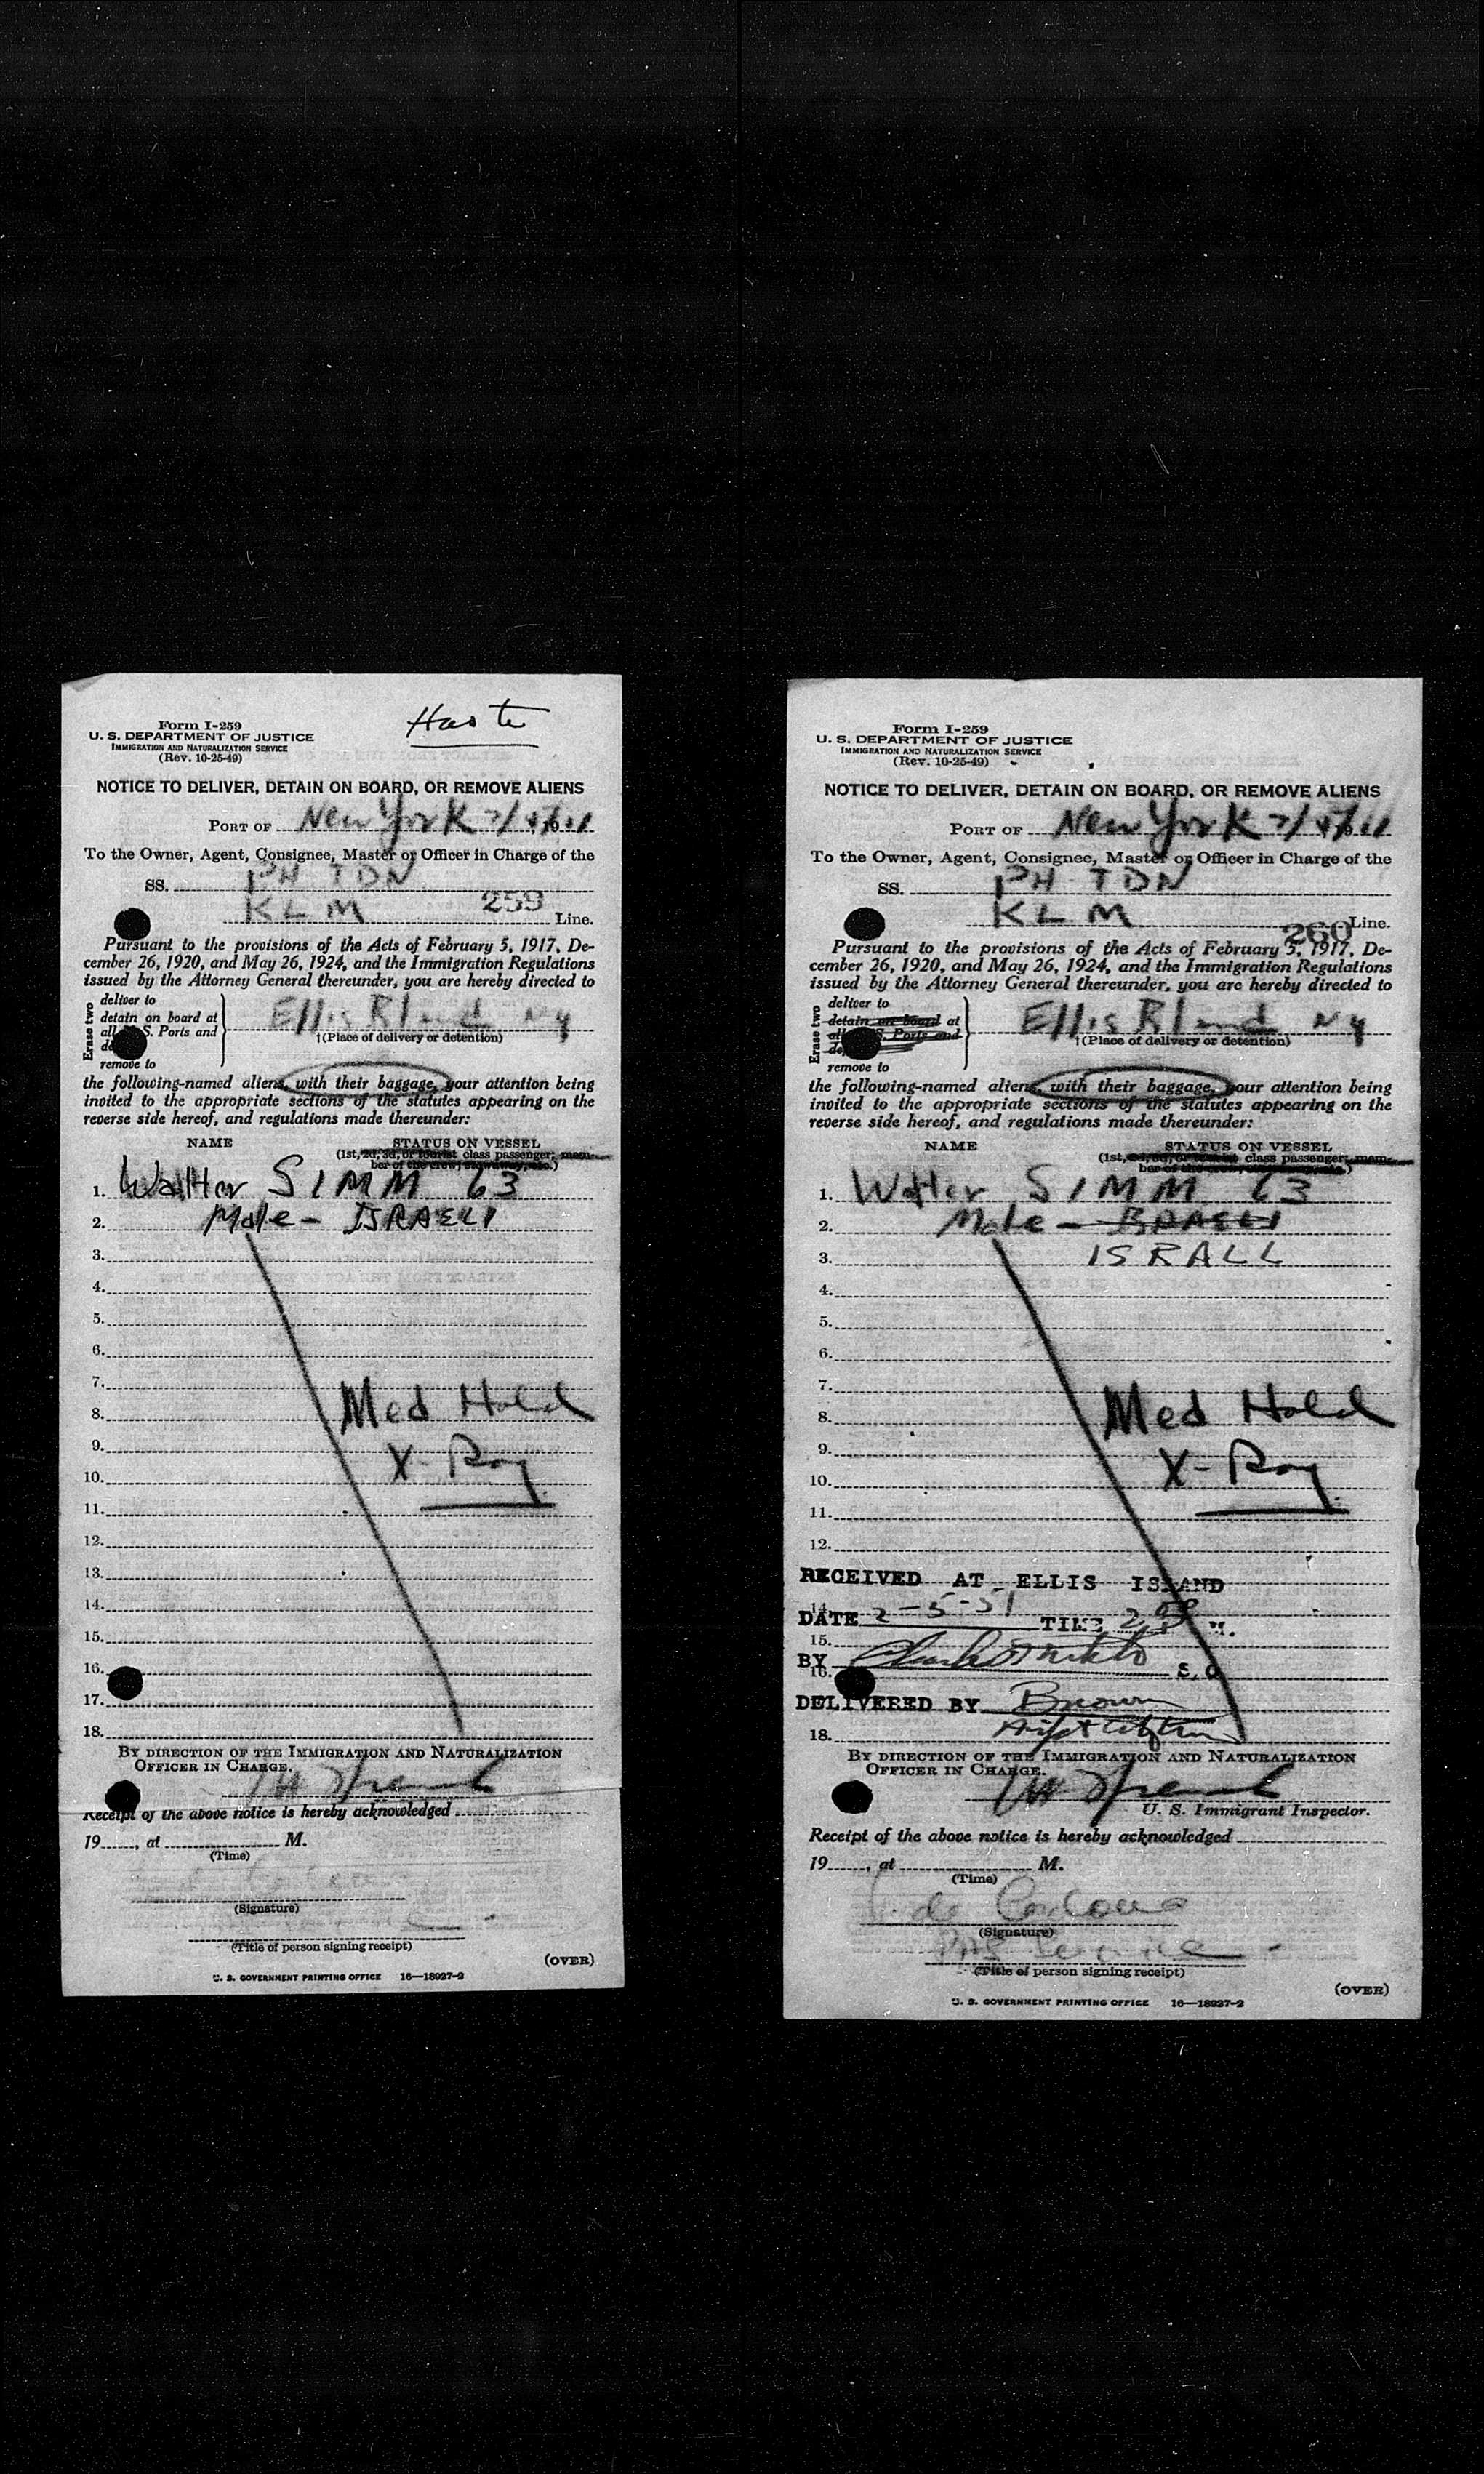 Haste
Form I-259
U. S. DEPARTMENT OF JUSTICE
IMMIGRATION AND NATURALIZATION SERVICE
(Rev. 10-25-49)
NOTICE TO DELIVER, DETAIN ON BOARD, OR REMOVE ALIENS
PORT OF New York
To the Owner, Agent, Consignee, Master or Officer in Charge of the
SS. PH TDN
KLM 259 Line.
Pursuant to the provisions of the Acts of February 5, 1917, De-
cember 26, 1920, and May 26, 1924, and the Immigration Regulations
issued by the Attorney General thereunder, you are hereby directed to
Erase two
deliver to
detain on board at
all S. Ports and
remove to
Ellis Island NY
†(Place of delivery or detention)
the following-named aliens, with their baggage, your attention being
invited to the appropriate sections of the statutes appearing on the
reverse side hereof, and regulations made thereunder:
NAME STATUS ON VESSEL
(1st, 2d, 3d, or tourist class passenger; mem-
ber of the crew, stowaway, etc.)
1. Walter SIMM 63
2. Male - ISRAELI
3.
4.
5.
6.
7.
8. Med Hold
9.
10. X-Ray
11.
12.
13.
14.
15.
16.
17.
18.
BY DIRECTION OF THE IMMIGRATION AND NATURALIZATION
OFFICER IN CHARGE.
Receipt of the above notice is hereby acknowledged
19, at M.
(Time)
(Signature)
(Title of person signing receipt)
(OVER)
U. S. GOVERNMENT PRINTING OFFICE 16—18927-2
Form I-259
U. S. DEPARTMENT OF JUSTICE
IMMIGRATION AND NATURALIZATION SERVICE
(Rev. 10-25-49)
NOTICE TO DELIVER, DETAIN ON BOARD, OR REMOVE ALIENS
PORT OF New York
To the Owner, Agent, Consignee, Master or Officer in Charge of the
SS. PH TDN
KLM Line.
260
Pursuant to the provisions of the Acts of February 5, 1917, De-
cember 26, 1920, and May 26, 1924, and the Immigration Regulations
issued by the Attorney General thereunder, you are hereby directed to
Erase two
deliver to
detain on board at
all S. Ports and
remove to
Ellis Island NY
†(Place of delivery or detention)
the following-named aliens, with their baggage, your attention being
invited to the appropriate sections of the statutes appearing on the
reverse side hereof, and regulations made thereunder:
NAME STATUS ON VESSEL
(1st, 2d, 3d, or tourist class passenger; mem-
ber of the crew, stowaway, etc.)
1. Walter SIMM 63
2. Male - ISRAELI
3. ISRALL
4.
5.
6.
7.
8. Med Hold
9.
10. X-Ray
11.
12.
RECEIVED AT ELLIS ISLAND
14.
DATE 2-5-51 TIME M.
15.
BY S.O.
16.
DELIVERED BY Brown
18.
BY DIRECTION OF THE IMMIGRATION AND NATURALIZATION
OFFICER IN CHARGE.
U. S. Immigrant Inspector.
Receipt of the above notice is hereby acknowledged
19, at M.
(Time)
de Cordova
(Signature)
(Title of person signing receipt)
(OVER)
U. S. GOVERNMENT PRINTING OFFICE 16—18927-2